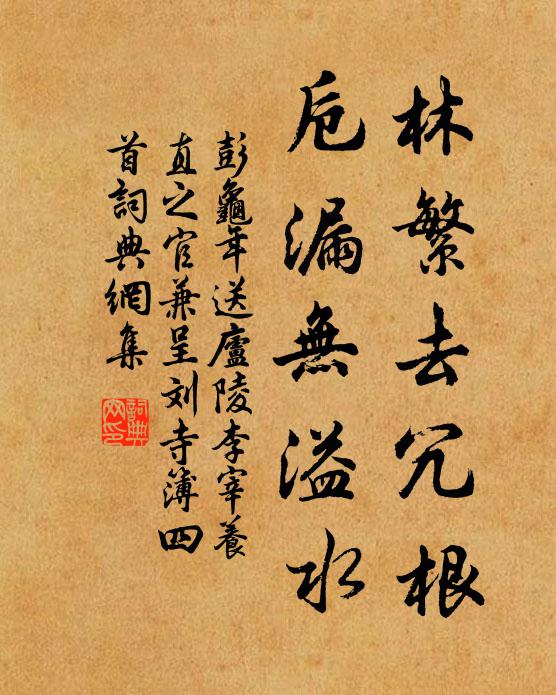 林繁去冗根
卮漏無溢水
彭龜年送廬陵李宰養
直之官兼呈刘寺簿四
首詞典網集
詞典
网印